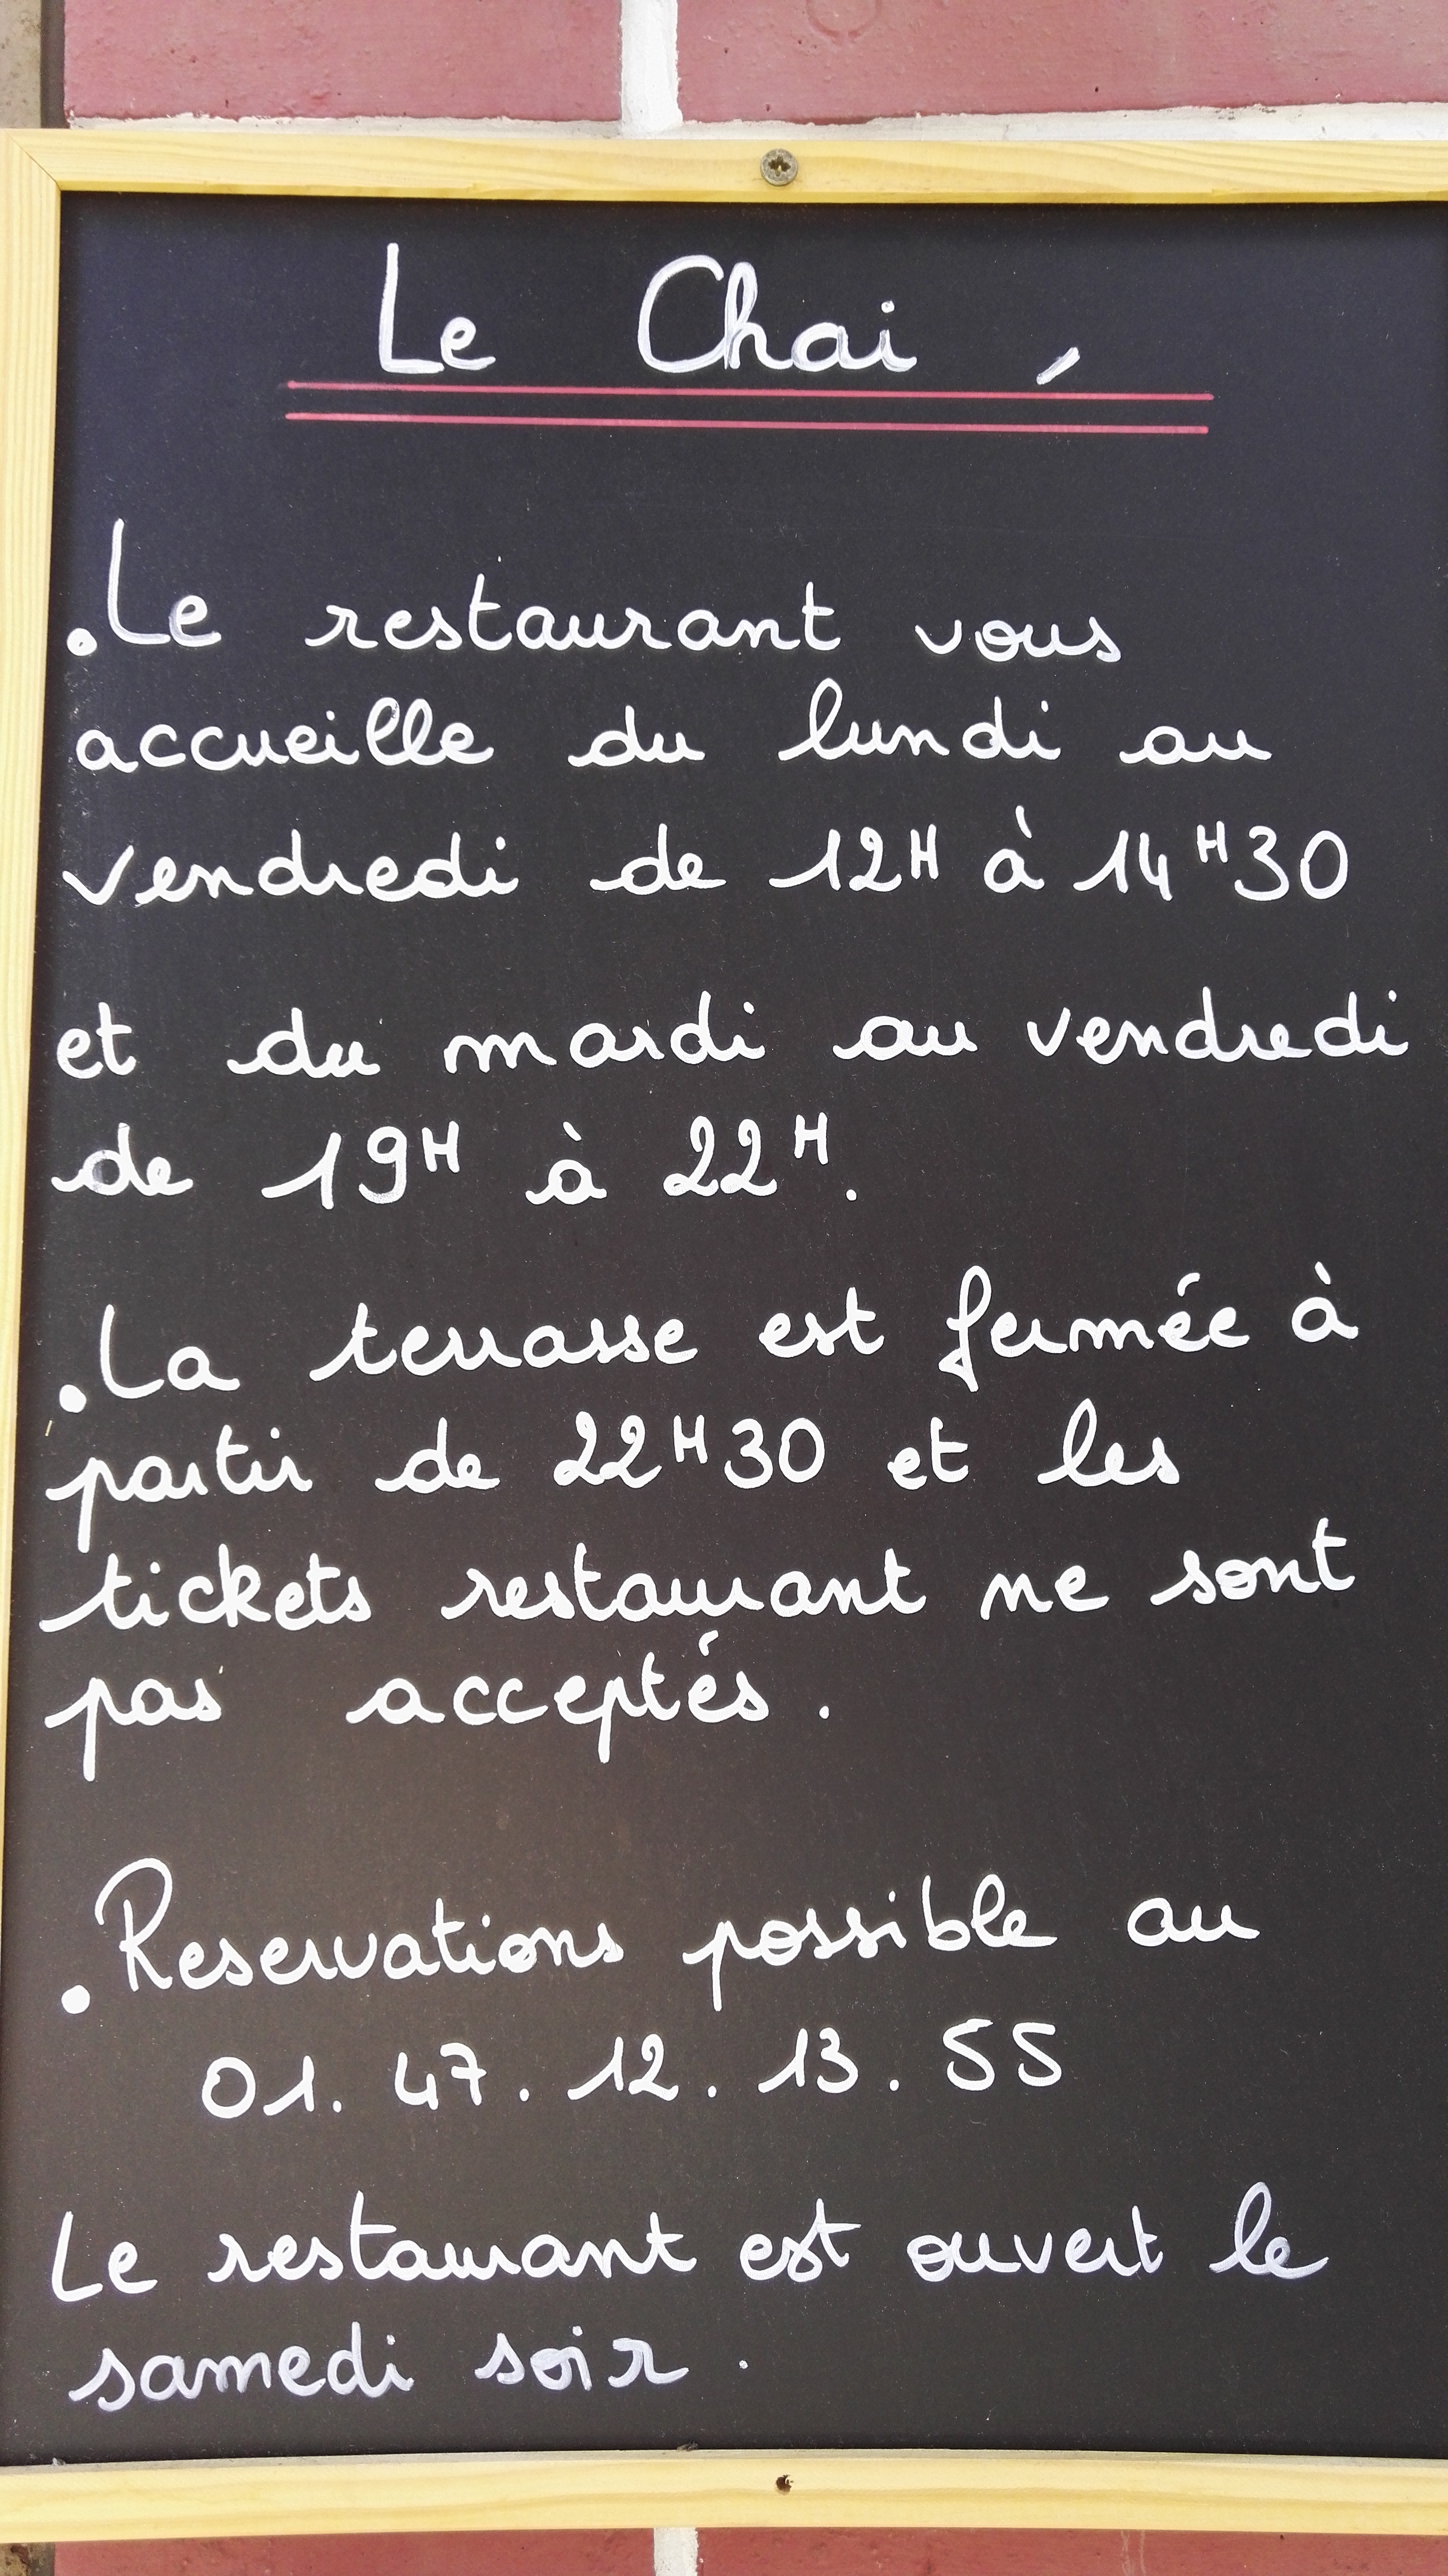 Le Chai,
.Le restaurant vous
accueille du lundi au
vendredi de 12H à 14H30
et du mardi au vendredi
de 19H à 22H.
.La terrasse est fermée à
partir de 22H30 et les
tickets restaurant ne sont
pas acceptés.
.Reservations possible au
01.47.12.13.55
Le restaurant est ouvert le
samedi soir.